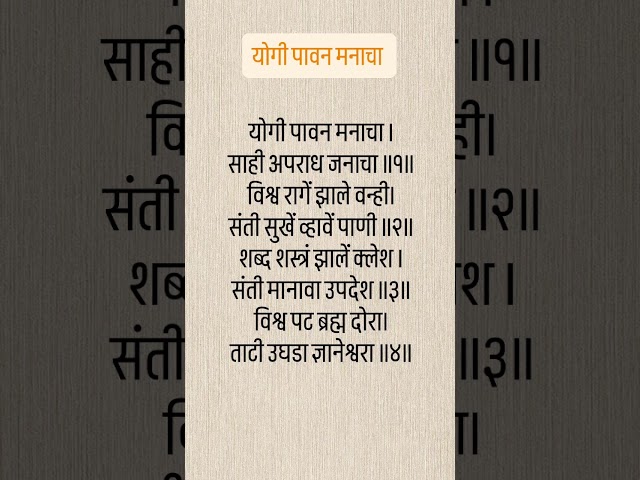 योगी पावन मनाचा
योगी पावन मनाचा ।
साही अपराध जनाचा ॥१॥
विश्व रागें झाले वन्ही।
संती सुखें व्हावें पाणी ॥२॥
शब्द शस्त्रं झालें क्लेश ।
संती मानावा उपदेश ॥३॥
विश्व पट ब्रह्म दोरा।
ताटी उघडा ज्ञानेश्वरा ॥४॥